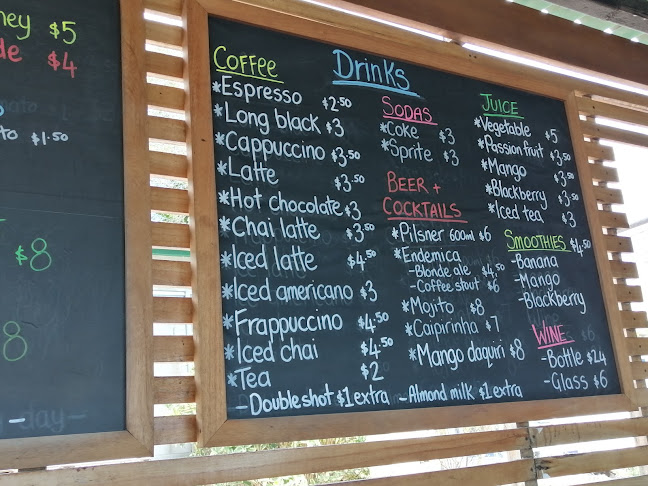 ney $5
de $4
to $1.50
$8
8
Drinks
Coffee
*Espresso $2.50
*Long black $3
*Cappuccino $3.50
*Latte $3.50
*Hot chocolate $3
*Chai latte $3.50
*Iced latte $4.50
*Iced americano $3
*Frappuccino $4.50
*Iced chai $4.50
*Tea $2
-Double shot $1 extra -Almond milk $1 extra
SODAS
*Coke $3
*Sprite $3
BEER +
COCKTAILS
*Pilsner 600ml $6
*Endemica
-Blonde ale $4.50
-Coffee stout $6
*Mojito $8
*Caipirinha $7
*Mango daquiri $8
JUICE
*Vegetable $5
*Passion fruit $3.50
*Mango $3.50
*Blackberry $3.50
*Iced tea $3
SMOOTHIES $4.50
-Banana
-Mango
-Blackberry
WINE
-Bottle $24
-Glass $6